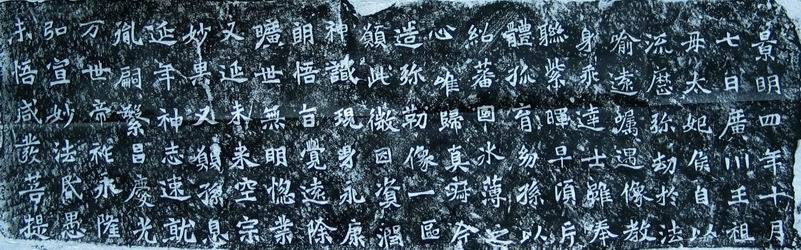 景明四年十月
七日廣川王祖
母太妃侯自以
流歷弥劫於法
喻遠囑遇像教
身乖達士雖奉
聯紫暉早頃片
體孤育幼孫以
紹蕃國冰薄之
心唯歸真寂今
造弥勒像一區
願此微因資潤
神識現身永康
朗悟旨覺遠除
曠世無明惚業
又延未来空宗
妙異又願孫息
延年神志速就
胤嗣繁昌慶光
万世帝祚永隆
弘宣妙法昏愚
未悟咸發菩提